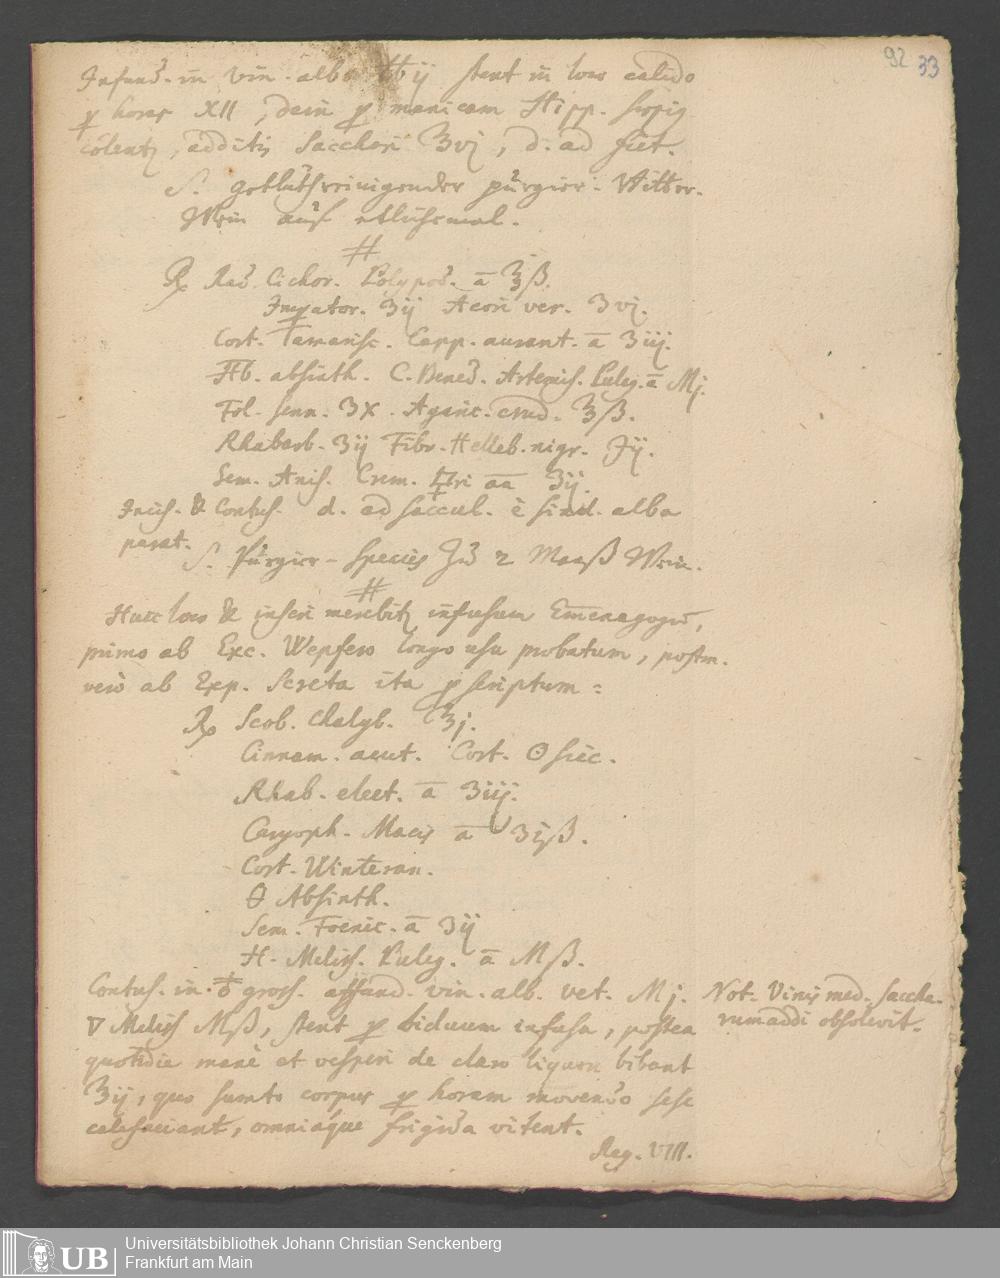 92 33
Infund. in vin. albo ℔ij stent in loco calido
ꝑ horas XII, dein ꝑ manicam Hipp.
colent, additis Sacchari ℥vj, d. ad fict.
S. geblüthreinigender purgier. Kütter.
Wein auf etlichemal.
#
℞ Rad. Cichor. Polypod. a ℥ß.
Imperator. ʒij Acori ver. ʒvj.
Cort. Tamarisc. Capp. aurant. a ʒiij.
Hb. absinth. C. Bened. Artemis. Puleg. a Mj.
Fol. senn. ʒx. Agaric. crud. ℥ß.
Rhabarb. ʒij Fibr. Helleb. nigr. ℈ij.
Sem. Anis. Crem. ▽ri aa ʒij
Incis. & Contus. d. ad saccul. è sind. alba
parat.
S. Purgier-Species Zu 2 Maaß Wein.
#
Huic loco & inseri merebit infusum Emenagogū,
primo ab Exc. Wepfero longo usu probatum, postm.
vero ab Exp. Screta ita ꝑscriptum:
℞ Scob. Chalyb. ℥j.
Cinnam. acut. Cort. ʘ sicc.
Rhab. elect. a ʒiij.
Caryoph. Macis a ʒjß.
Cort. Winteran.
θ Absinth.
Sem. Foenic. a ʒij
H. Meliss. Puleg. a Mß.
Contus. in ♁ gross. affund. vin. alb. vet. Mj.
▽ Meliss Mß, stent ꝑ biduum infusa, postea
quotidie mane et vesperi de claro liquore bibant
℥ij, quo sumto corpus ꝑ horam movendo sese
calefaciant, omniáque frigida vitent.
Reg. VIII.
Not. Vinis med. saccha-
rum addi obsolevit.
UB Universitätsbibliothek Johann Christian Senckenberg
Frankfurt am Main